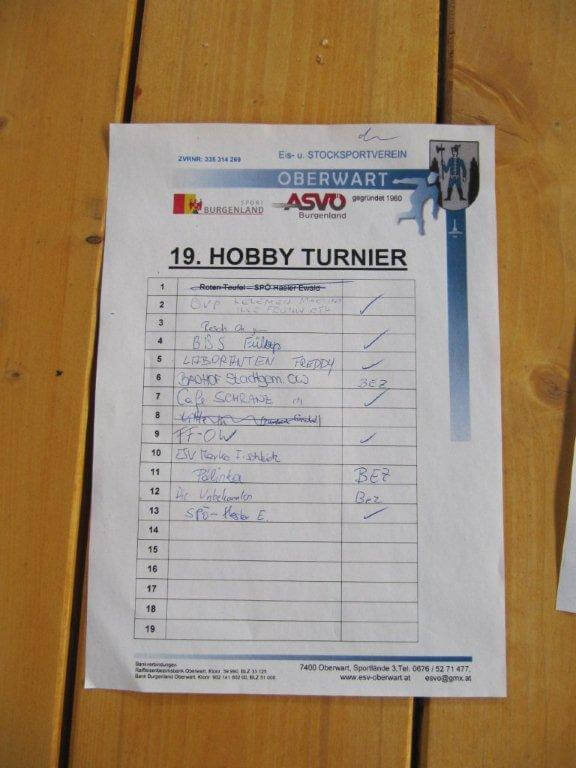 ZVRNR: 335 314 269
EIS- u. STOCKSPORTVEREIN
OBERWART
SPORT BURGENLAND
ASVÖ Burgenland
gegründet 1960
19. HOBBY TURNIER
1 Roten Teufel - SPÖ Hasler Ewald
2 ÖVP KELEMEN
3
4 BBS ✓
5 LABORANTEN FREDDY ✓
6 BAUHOF Stadtgem. OW BEZ
7 Cafe SCHRANZ ✓
8
9 FF-OW ✓
10 ESV
11 Palinka BEZ
12 Die Unbekannten Bez
13 SPÖ- E. ✓
14
15
16
17
18
19
Bankverbindungen
Raiffeisenbezirksbank Oberwart,
Bank Burgenland Oberwart,
7400 Oberwart, Sportlände 3,Tel. 0676 / 52 71 477,
www.esv-oberwart.at esvo@gmx.at